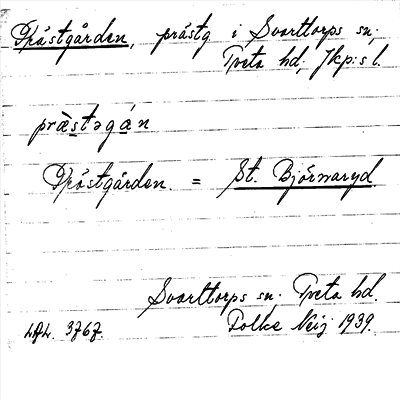 Prästgården, prästg i Svarttorps sn;
Tveta hd, Jkp:s l.
præ̀stəgán
Prästgården. = St. Björnaryd
Svarttorps sn; Tveta hd.
LAL. 3767. Folke Neij 1939.